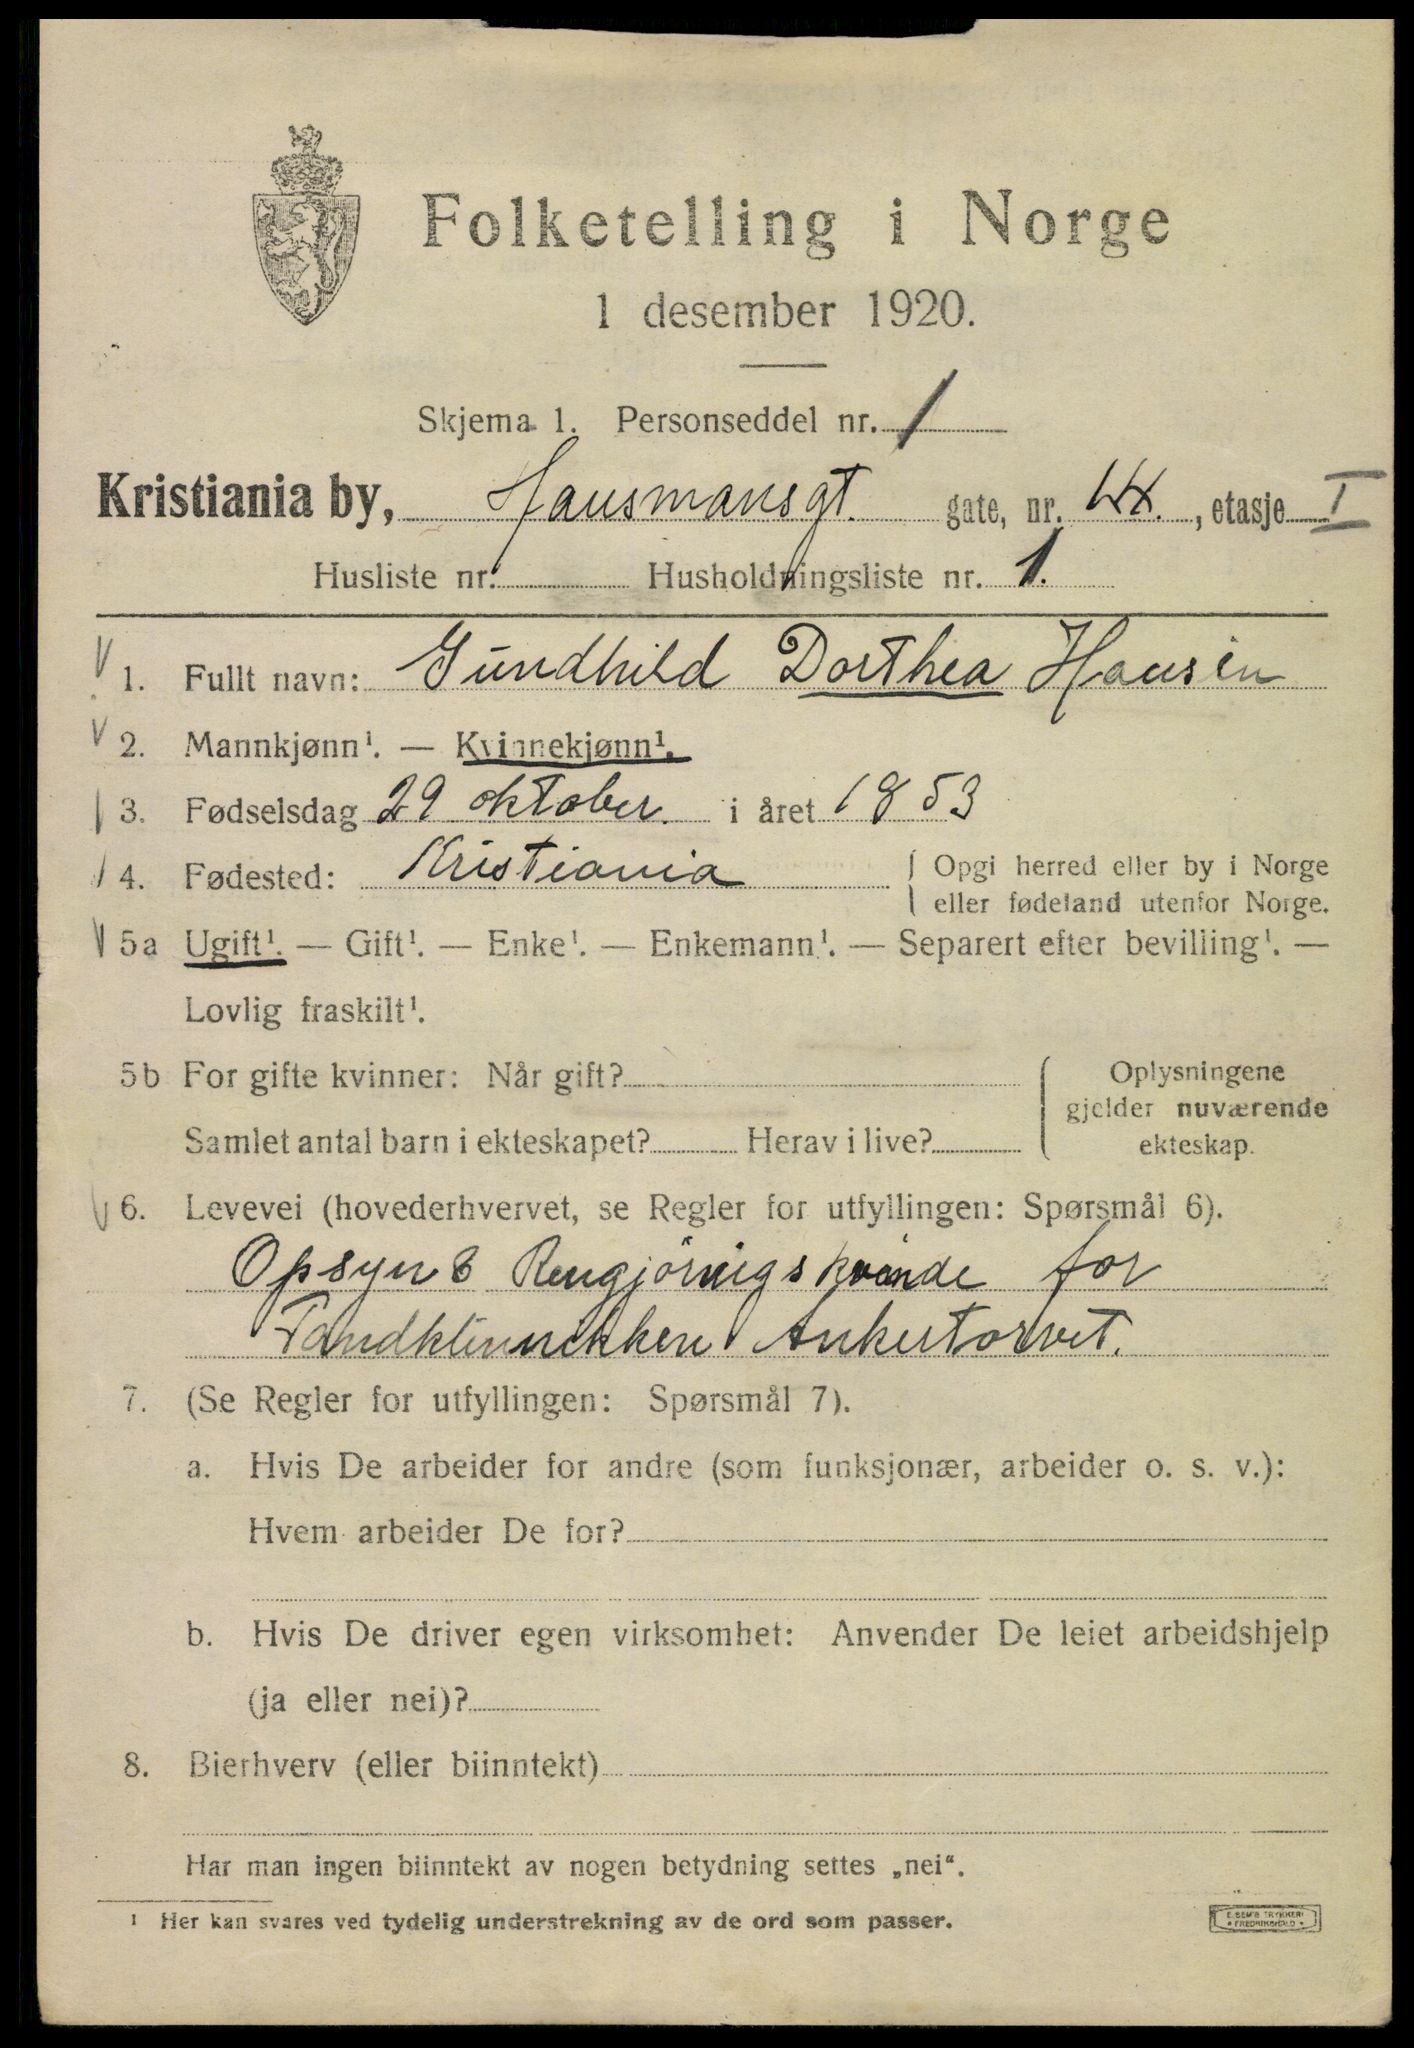 Folketelling i Norge
1 desember 1920.
Skjema 1. Personseddel nr. 1
Kristiania by, Hausmansgt. gate, nr. , etasje I
Husliste nr. Husholdningsliste nr. 1.
1. Fullt navn: Gundhild Dorthea Hansen
2. Mannkjønn¹. — Kvinnekjønn¹.
3. Fødselsdag 29 oktober. i året 1853
4. Fødested: Kristiania { Opgi herred eller by i Norge
eller fødeland utenfor Norge.
5a Ugift¹. — Gift¹. — Enke¹. — Enkemann¹. — Separert efter bevilling¹. —
Lovlig fraskilt¹.
5b For gifte kvinner: Når gift? { Oplysningene
gjelder nuværende
Samlet antal barn i ekteskapet? Herav i live? ekteskap.
6. Levevei (hovederhvervet, se Regler for utfyllingen: Spørsmål 6).
Opsyn & Rengjörnigskvinde for
Tandklinnikken Ankertorvet.
7. (Se Regler for utfyllingen: Spørsmål 7).
a. Hvis De arbeider for andre (som funksjonær, arbeider o. s. v.):
Hvem arbeider De for?
b. Hvis De driver egen virksomhet: Anvender De leiet arbeidshjelp
(ja eller nei)?
8. Bierhverv (eller biinntekt)
Har man ingen biinntekt av nogen betydning settes „nei“.
¹ Her kan svares ved tydelig understrekning av de ord som passer.
E. SEM'S TRYKKERI
FREDRIKSHALD